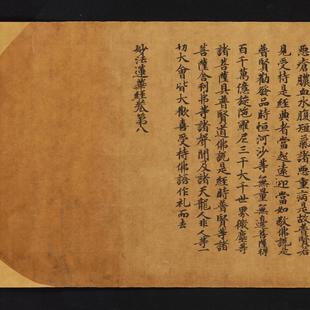 惡瘡膿血水腹短氣諸惡重病是故普賢若
見受持是經典者當起遠迎當如敬佛說是
普賢勸發品時恒河沙等無量無邊菩薩得
百千萬億旋陀羅尼三千大千世界微塵等
諸菩薩具普賢道佛說是經時普賢等諸
菩薩舍利弗等諸聲聞及諸天龍人非人等一
切大會皆大歡喜受持佛語作礼而去
妙法蓮華經卷第八